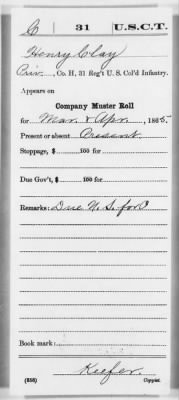 C | 31 | U.S.C.T.
Henry Clay
Priv., Co. H, 31 Reg't U. S. Col'd Infantry.
Appears on
Company Muster Roll
for Mar & Apr., 1865
Present or absent Present
Stoppage, $ 100 for
Due Gov't, $ 100 for
Remarks: Due U. S. for
Book mark:
Kiefer.
(358) Copyist.